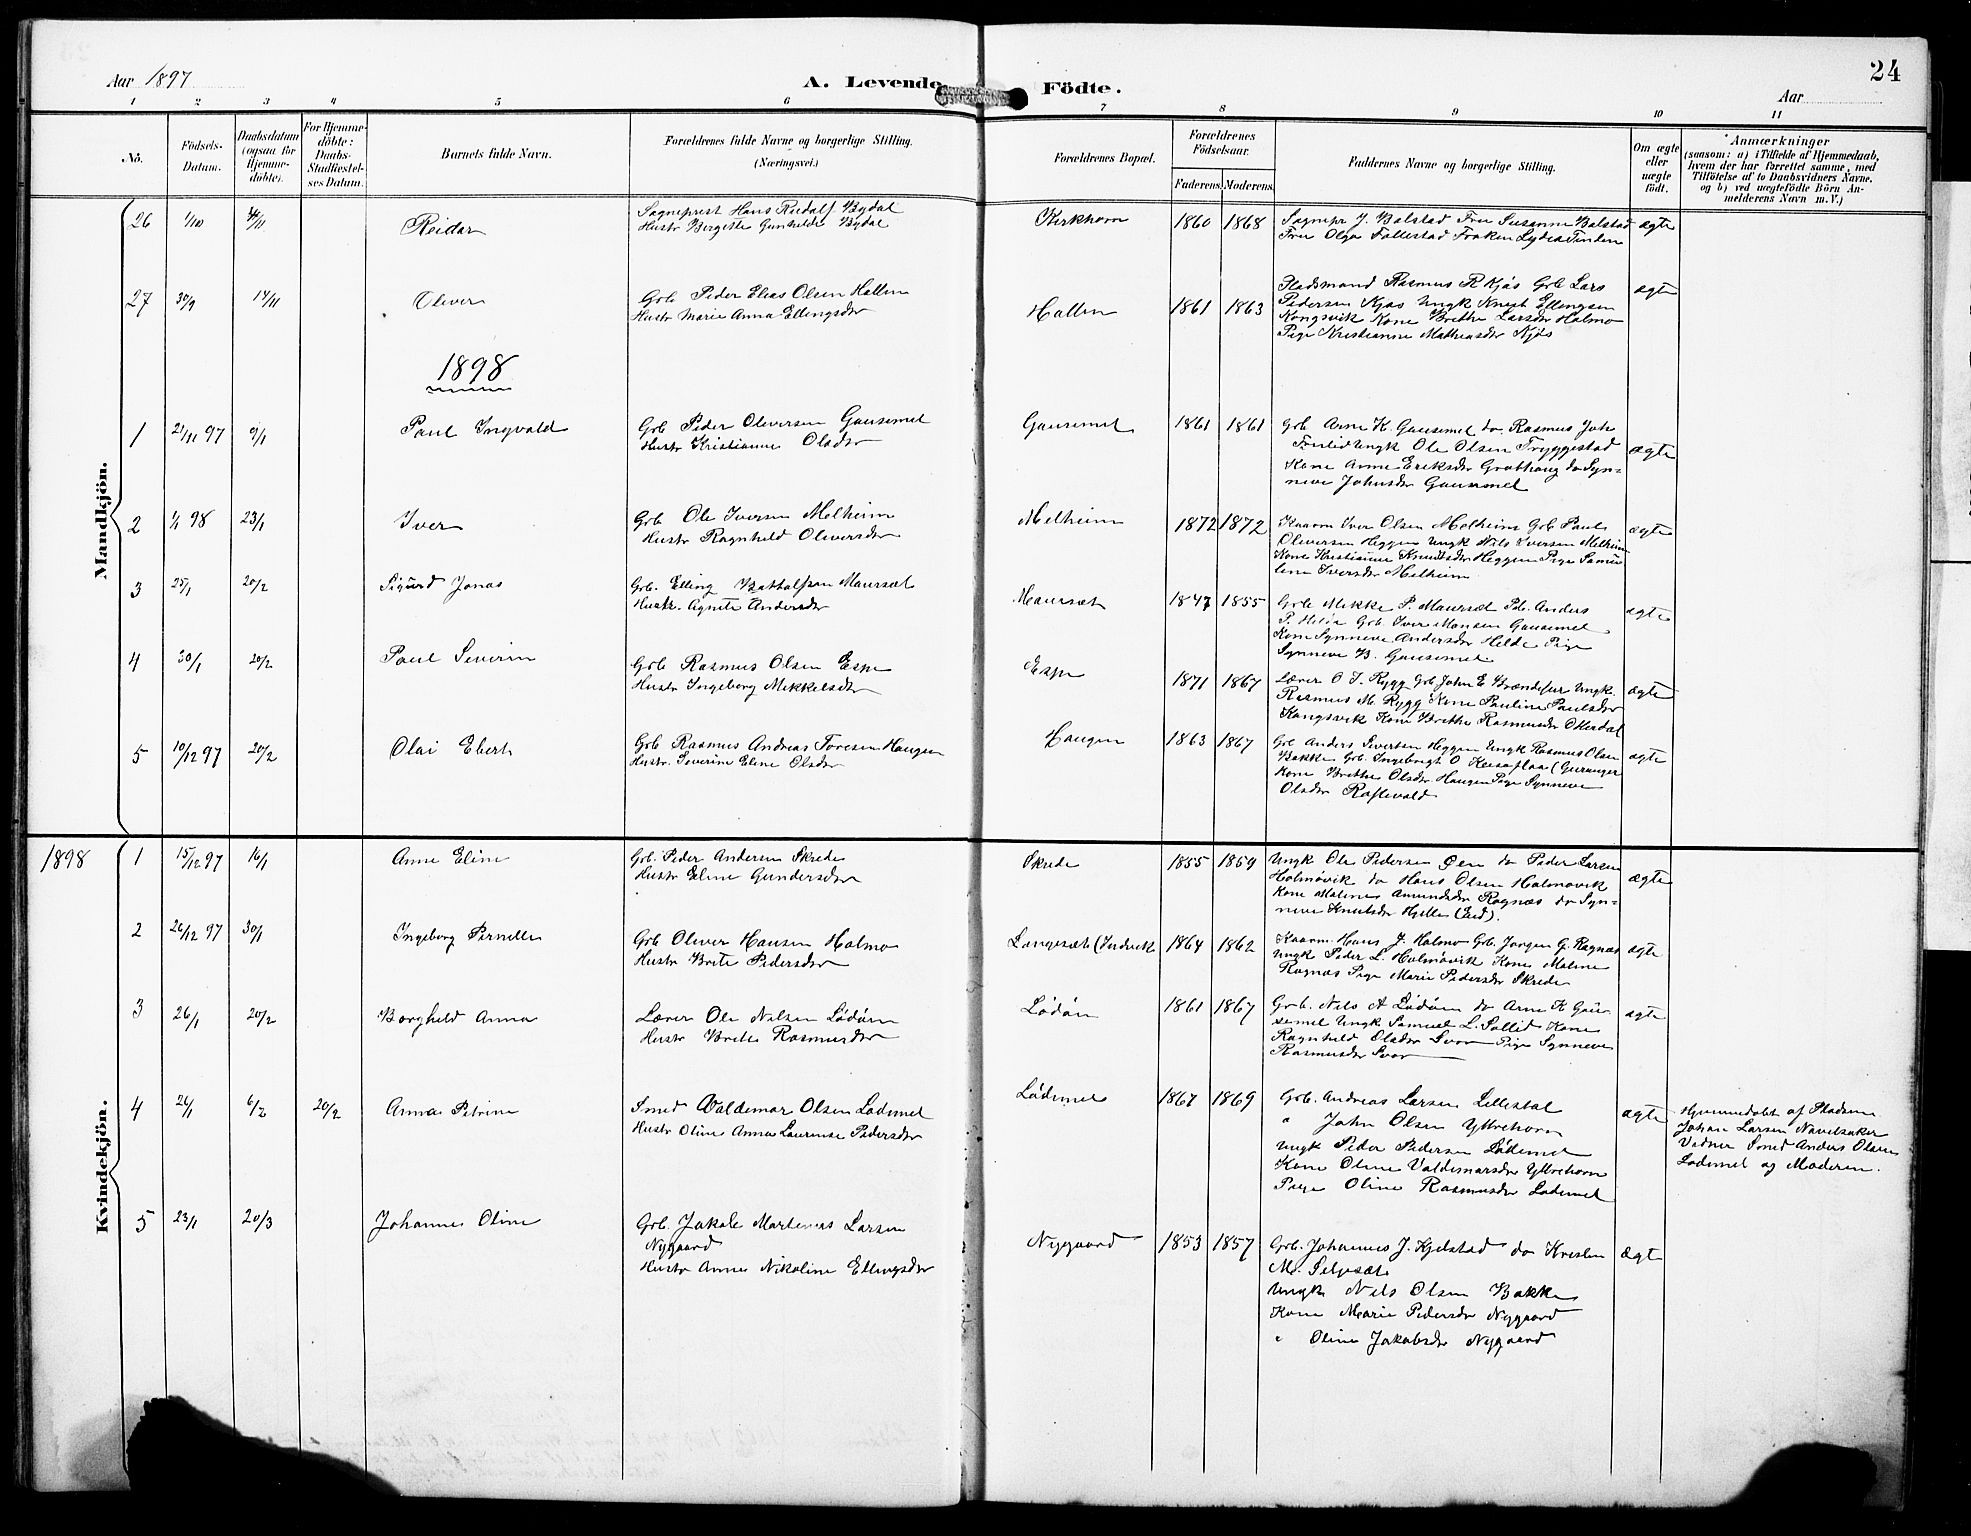 24
Aar 1897
A. Levende Födte.
Aar
1 2 3 4 5 6 7 8 9 10 11
No.
Födsels-
Datum.
Daabsdatum
(ogsaa for
Hjemme-
döbte).
For Hjemme-
döbte:
Daabs-
Stadfæstel-
ses Datum.
Barnets fulde Navn.
Forældrenes fulde Navne og borgerlige Stilling.
(Næringsvei.)
Forældrenes Bopæl.
Forældrenes
Födselsaar.
Faderens. Moderens.
Faddernes Navne og borgerlige Stilling.
Om ægte
eller
uægte
födt.
Anmærkninger
(saasom: a) i Tilfælde af Hjemmedaab,
hvem der har forrettet samme, med
Tilföielse af to Daabsvidners Navne,
og b) ved uægtefödte Börn An-
melderens Navn m.V.)
Mandkjön.
26 1/10 /11 Reidar
Sogneprest Hans Riedolf Bydal
Hustr Birgitte Gunhilde Bydal
Kirkhorn 1860 1868
Sognepr J. Balstad Fru Susanne Balstad
Frue Olga Follestad Frøken Lydia Tinden
ægte
27 30/9 14/11 Oliver
Grb Peder Elias Olsen Hallen
Hustr Marie Anna Ellingsdr
Hallen 1861 1863
Pladsmand Rasmus R Kjøs Grb Lars
Pedersen Kjøs Ungk Knut Ellingsen
Kongsvik Kone Brithe Larsdr Holmo
Pige Kristianne Mathiasdr Kjøs
ægte
1898
1 21/11 97 9/1 Paul Ingvald
Grb Peder Oliversen Gausemel
Hustr Kristianne Olsdr
Gausemel 1861 1861
Grb Arne K. Gausemel do Rasmus Joh
Ungk Ole Olsen Tryggestad
Kone Anne Eriksdr Grothaug do Syn-
neve Johnsdr Gausemel
ægte
2 1/1 98 23/1 Iver
Grb Ole Iversen Melheim
Hustr Ragnhild Oliversdr
Melheim 1872 1872
Kaarm Iver Olsen Melheim Grb Paul
Oliversen Heggen Ungk Nils Iversen Melheim
Kone Kristianne Knudsdr Heggen Pige Samu-
line Iversdr Melheim
ægte
3 25/1 20/2 Sigurd Jonas
Grb. Elling Bathalfsen Maurset
Hustr. Agnete Andersdr
Maurset 1847 1855
Grb Mikke P. Maurset Grb. Anders
P. Helde Grb Iver Monsen Gausemel
Kone Synneve Andersdr Helde Pige
Synneve B. Gausemel
ægte
4 30/1 20/2 Paul Severin
Grb Rasmus Olsen Espe
Hustr Ingeborg Mikkelsdr
Espe 1871 1867
Lærer O I. Rygg Grb John E Brændefur Ungk.
Rasmus M. Rygg Kone Pauline Paulsdr
Kongsvik Kone Brithe Rasmusdr Otterdal
ægte
5 10/12 97 20/2 Olai Ebert
Grb Rasmus Andreas Toresen Haugen
Hustr. Severine Eline Olsdr
Haugen 1863 1867
Grb Anders Sivertsen Heggen Ungk Rasmus Olsen
Bakke Grb. Ingebrigt O (Geiranger
Kone Brithe Olsdr Haugen Pige Synneve
Olsdr Raftevold
ægte
Kvindekjön.
1898
1 15/12 97 16/1 Anne Eline
Grb. Peder Andersen Skrede
Hustr Eline Gundersdr
Skrede 1855 1859
Ungk Ole Pedersen Øen do Peder Larsen
Holmøvik do Hans Olsen Holmøvik
Kone Maline Amundsdr Ragnæs do Syn-
neve Knutsdr Hjelle (Eid).
ægte
2 26/12 97 30/1 Ingeborg Pernille
Grb Oliver Hansen Holmo
Hustr Brite Pedersdr
Langesæt (Indvik 1864 1862
Kaarm. Hans J. Holmo Grb. Jørgen G. Ragnæs
Ungk Peder L. Holmøvik Kone Maline
Ragnæs Pige Marie Pedersdr Skrede
ægte
3 26/1 20/2 Borghild Anna
Lærer Ole Nilsen Lødøen
Hustr Brite Rasmusdr
Lødøen 1861 1867
Grb. Nils A Lødøen do Arne K Gau-
semel Ungk Samuel L. Sollid Kone
Ragnhild Olsdr Svor Pige Synneve
Rasmusdr Svor
ægte
4 26/1 6/2 20/2 Anna Petrine
Smed Valdemar Olsen Lødemel
Hustr Oline Anna Laurense Pedersdr
Lødemel 1867 1869
Grb. Andreas Larsen Lillestøl
" John Olsen Ytrehorn
Ungk Peder Pedersen Lødemel
Kone Oline Valdemarsdr Ytrehorn
Pige Oline Rasmusdr Lødemel
ægte
Hjemmedøbt af Pladsm.
Johan Larsen Navelsaker
Vidner Smed Anders Olsen
Lødemel og Moderen.
5 23/1 20/3 Johannes Oline
Grb. Jakob Martinus Larsen
Nygaard
Hustr Anne Nikoline Ellingsdr
Nygaard 1853 1857
Grb. Johannes J. Kjelstad do Kristen
M. Seljesæt
Ungk Nils Olsen Bakke
Kone Marie Pedersdr Nygaard
" Oline Jakobsdr Nygaard
ægte